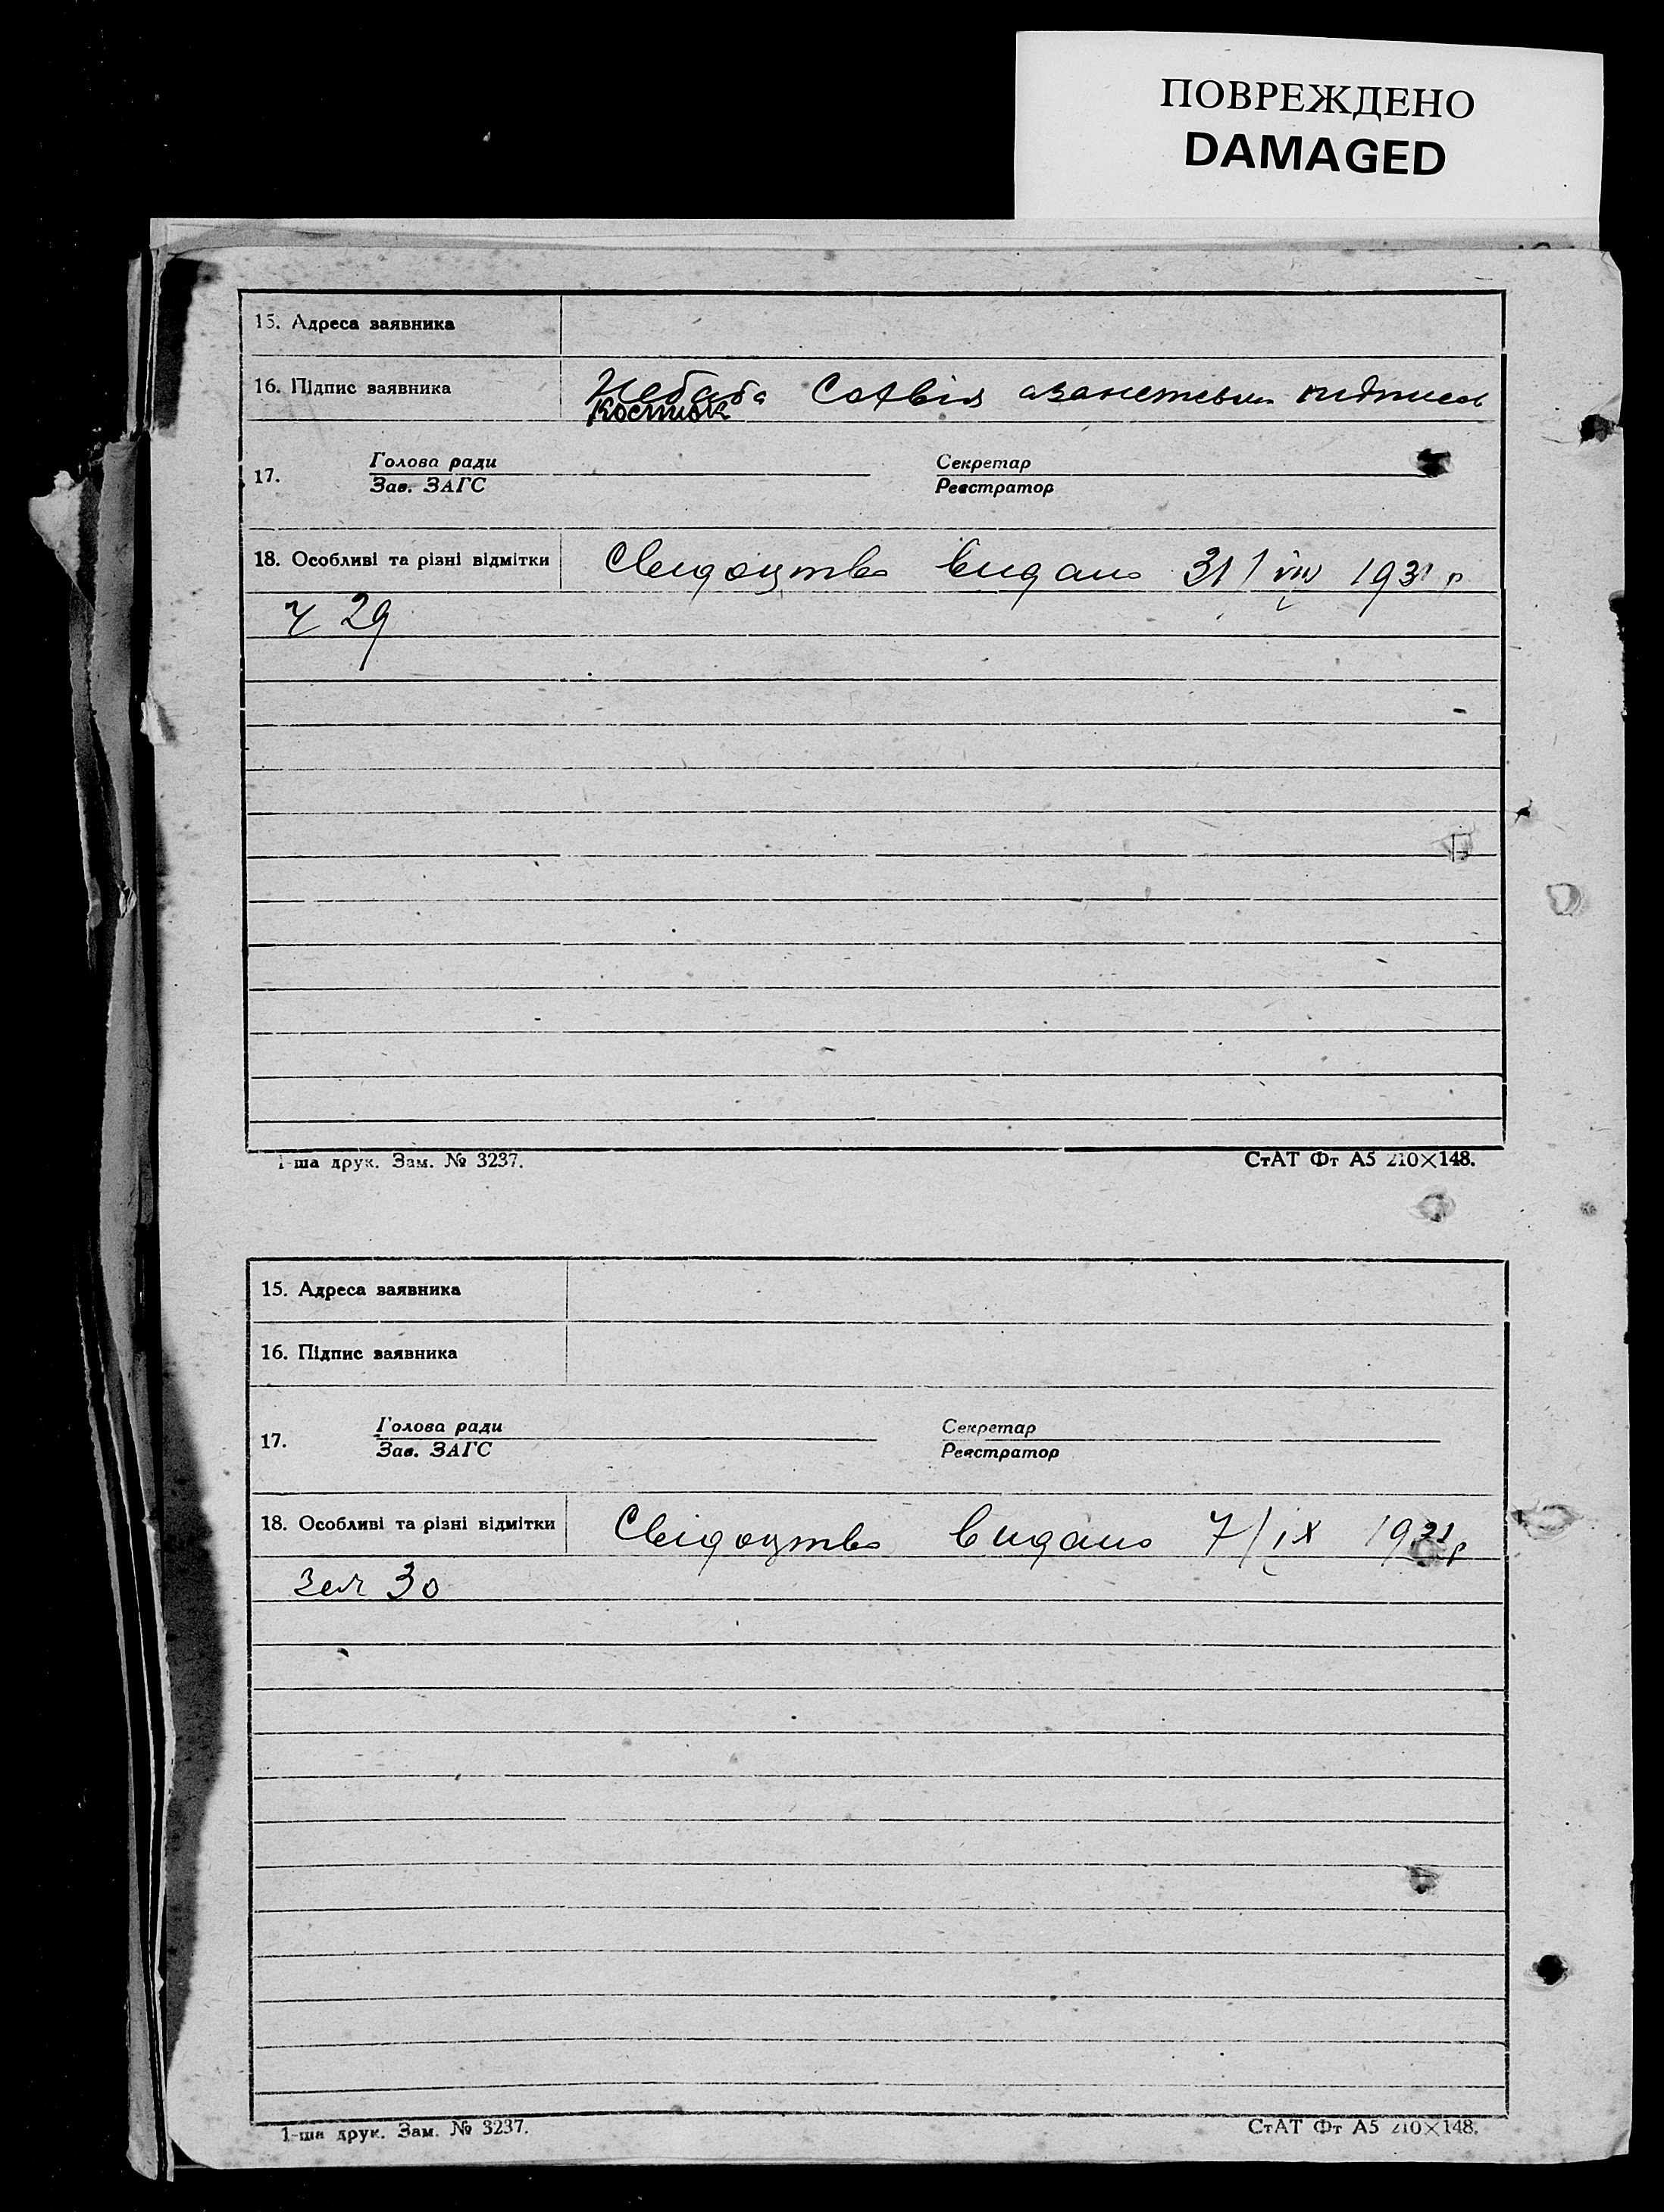 ПОВРЕЖДЕНО
DAMAGED
15. Адреса заявника
16. Підпис заявника Небаба
Костюк
17. Голова ради Секретар
Зав. ЗАГС Реєстратор
18. Особливі та різні відмітки Свидоцтво видано 31/VIII 1931 р
ч 29
1-ша друк. Зам. № 3237. СтАТ Фт А5 210×148.
15. Адреса заявника
16. Підпис заявника
17. Голова ради Секретар
Зав. ЗАГС Реєстратор
18. Особливі та різні відмітки Свідоцтво видано 7/IX 1931 р
30
1-ша друк. Зам. № 3237. СтАТ Фт А5 210×148.